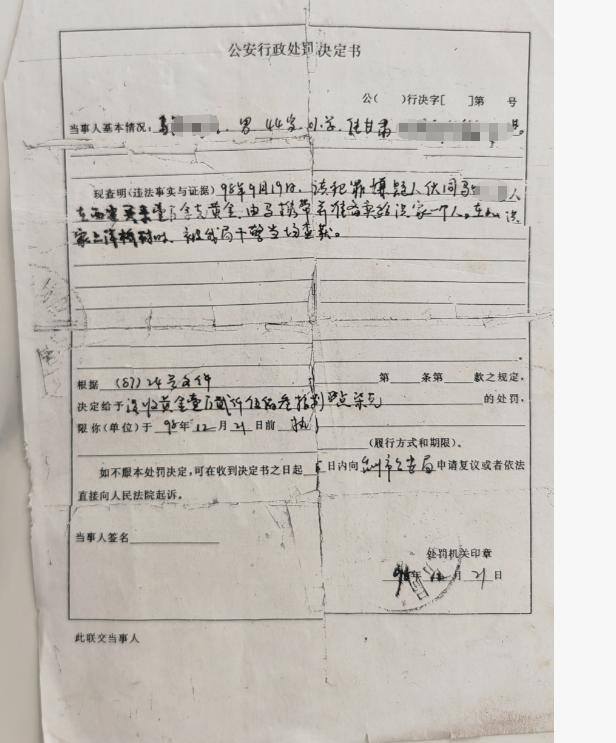 公安行政处罚决定书
公( )行决字[ ]第 号
当事人基本情况: 马 、男 44岁 小学 住甘肃
现查明(违法事实与证据)98年9月19日,该犯罪嫌疑人伙同马 人
在 黄金,由马携带 准备卖给 家一个人。在
家 ,被我局干警当场查获。
根据 (87)24号文件 第 条第 款之规定,
决定给于没收黄金壹万贰仟伍佰叁拾 点 克 的处罚。
限你(单位)于 98年12月21日前 执
(履行方式和期限)。
如不服本处罚决定,可在收到决定书之日起 5 日内向 市公安局申请复议或者依法
直接向人民法院起诉。
当事人签名
处罚机关印章
98年12月21日
此联交当事人